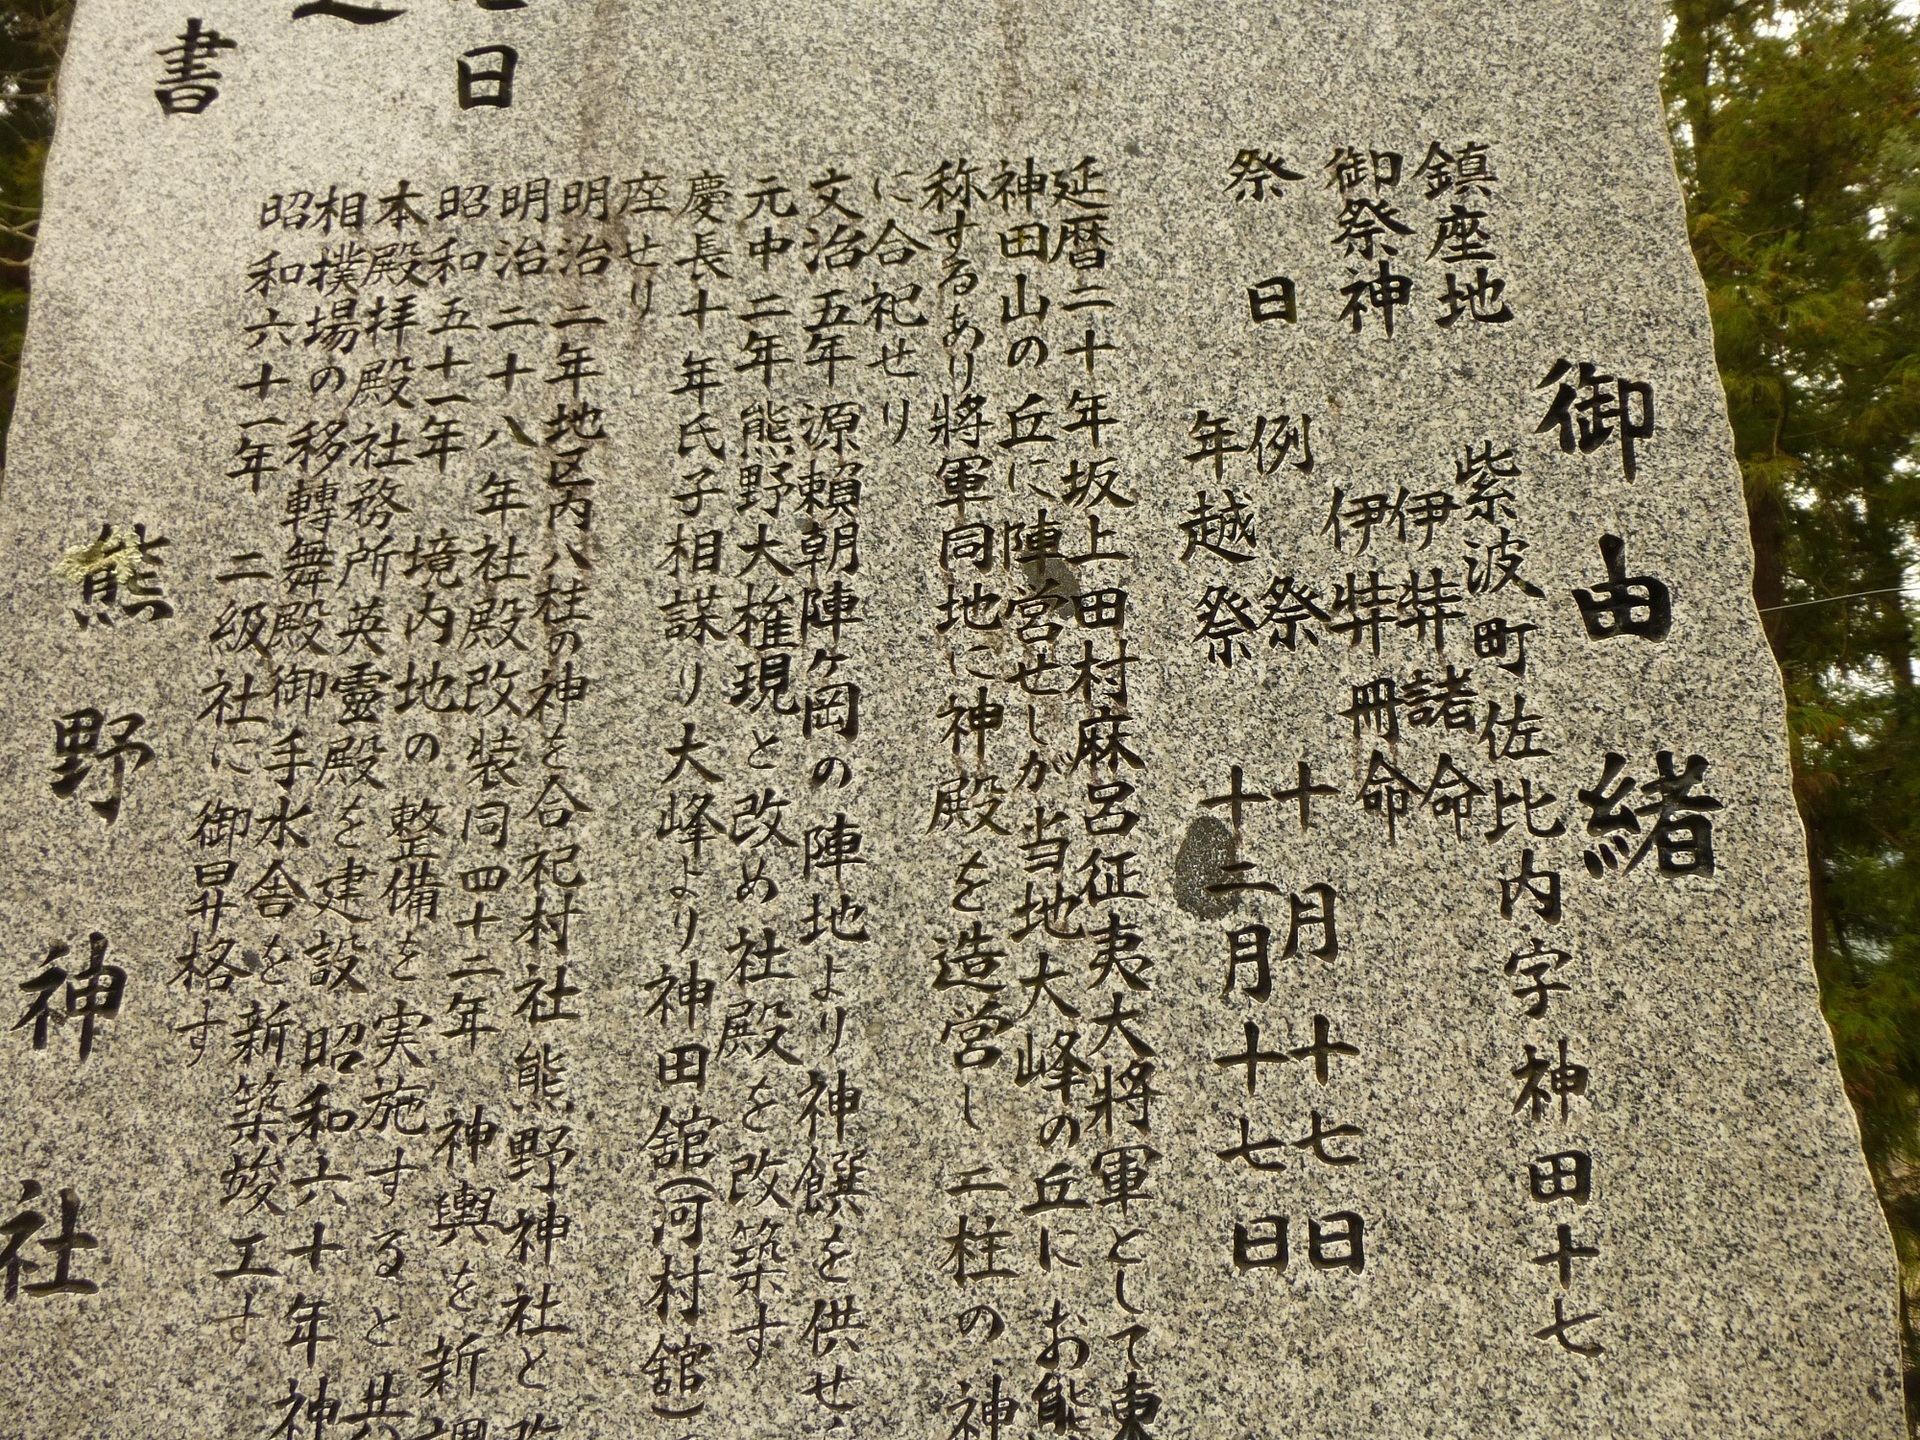 御由緒
鎮座地 紫波町佐比内字神田十七
御祭神 伊弉諸命
伊弉冊命
祭日 例祭 十月十七日
年越祭 十二月十七日
延暦二十年坂上田村麻呂征夷大将軍として東
神田山の丘に陣営せしが当地大峰の丘にお熊
称するあり將軍同地に神殿を造営し二柱の神
に合祀せり
文治五年源賴朝陣ヶ岡の陣地より神饌を供せ
元中二年熊野大権現と改め社殿を改築す
慶長十年氏子相謀り大峰より神田舘(河村舘)
座せり
明治二年地区内八柱の神を合祀村社熊野神社と改
明治二十八年社殿改装同四十二年神輿を新調
昭和五十一年境内地の整備を実施すると共
本殿拝殿社務所英靈殿を建設昭和六十年神
相撲場の移轉舞殿御手水舎を新築竣工す
昭和六十一年二級社に御昇格す
日
熊野神社
書